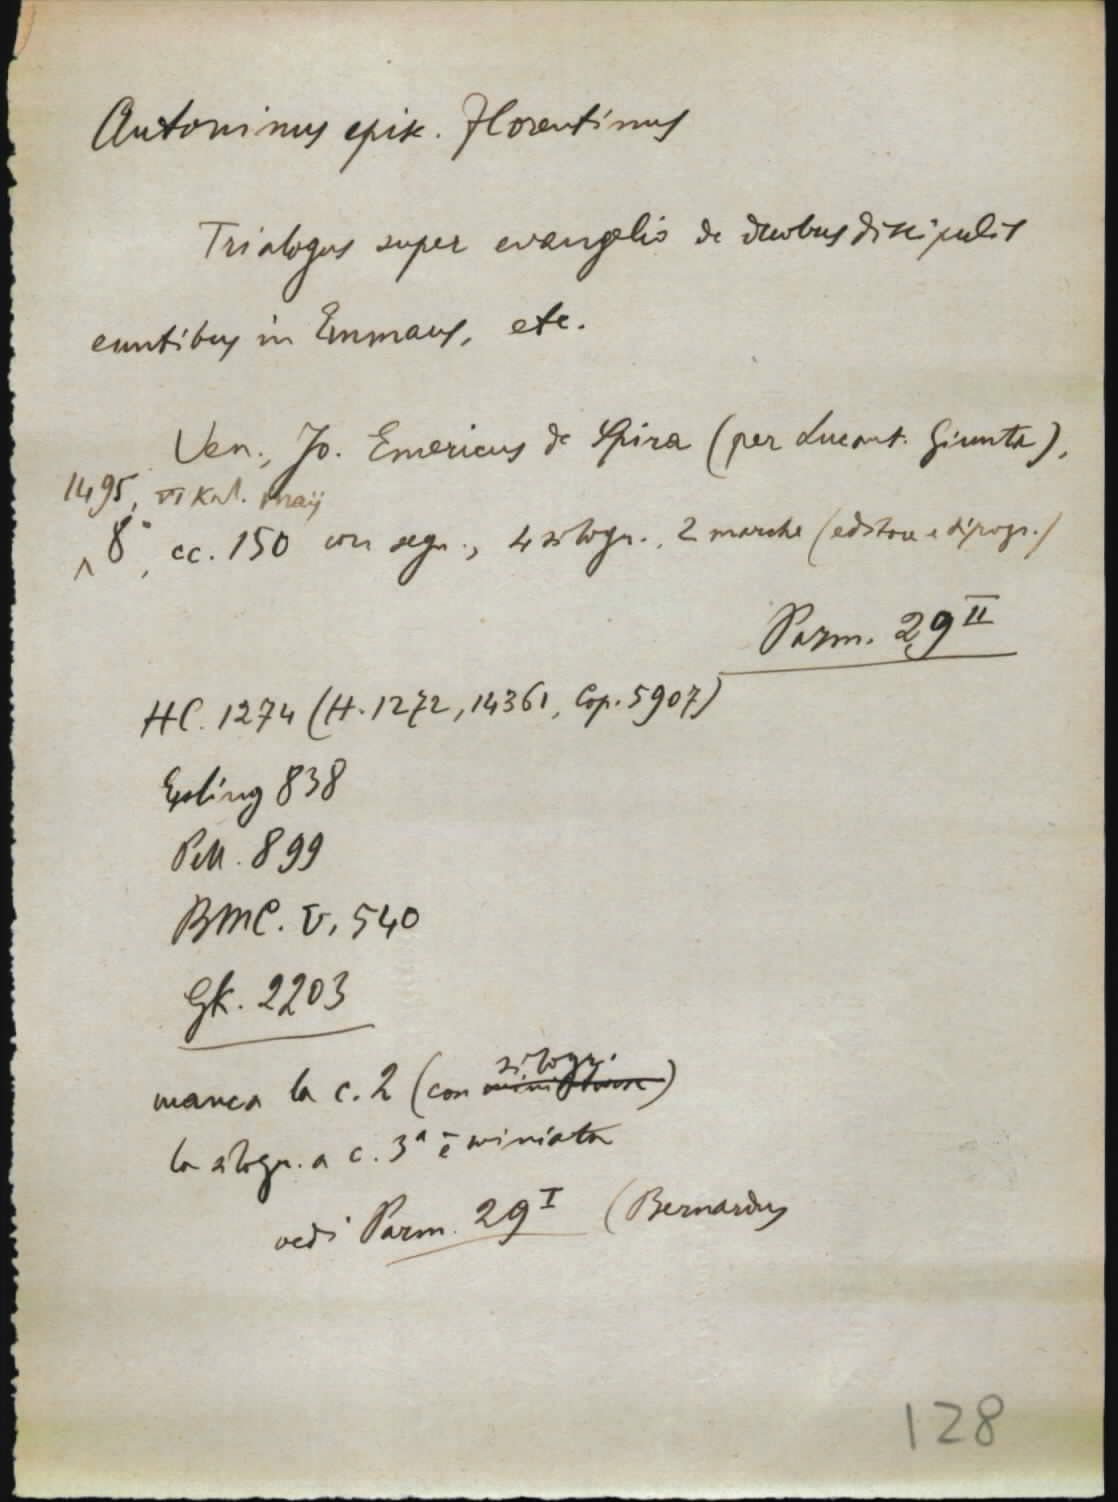 Antoninus episc. Florentinus
Trialogus super evangelio de duobus discipulis
euntibus in Emmaus, etc.
Ven., Jo. Emericus de Spira (per Lucant. Giunta),
1495, VI Kal. maij
8°, cc. 150 con segn., 4 silogr., 2 marche (editore e tipogr.)
Parm. 29 II
HC. 1274 (H. 1272, 14361, Cop. 5907)
Essling 838
Pell. 899
BMC. V, 540
Gk. 2203
manca la c. 2 (con silogr.)
la silogr. a c. 3ª è miniata
vedi Parm. 29 I (Bernardus
128